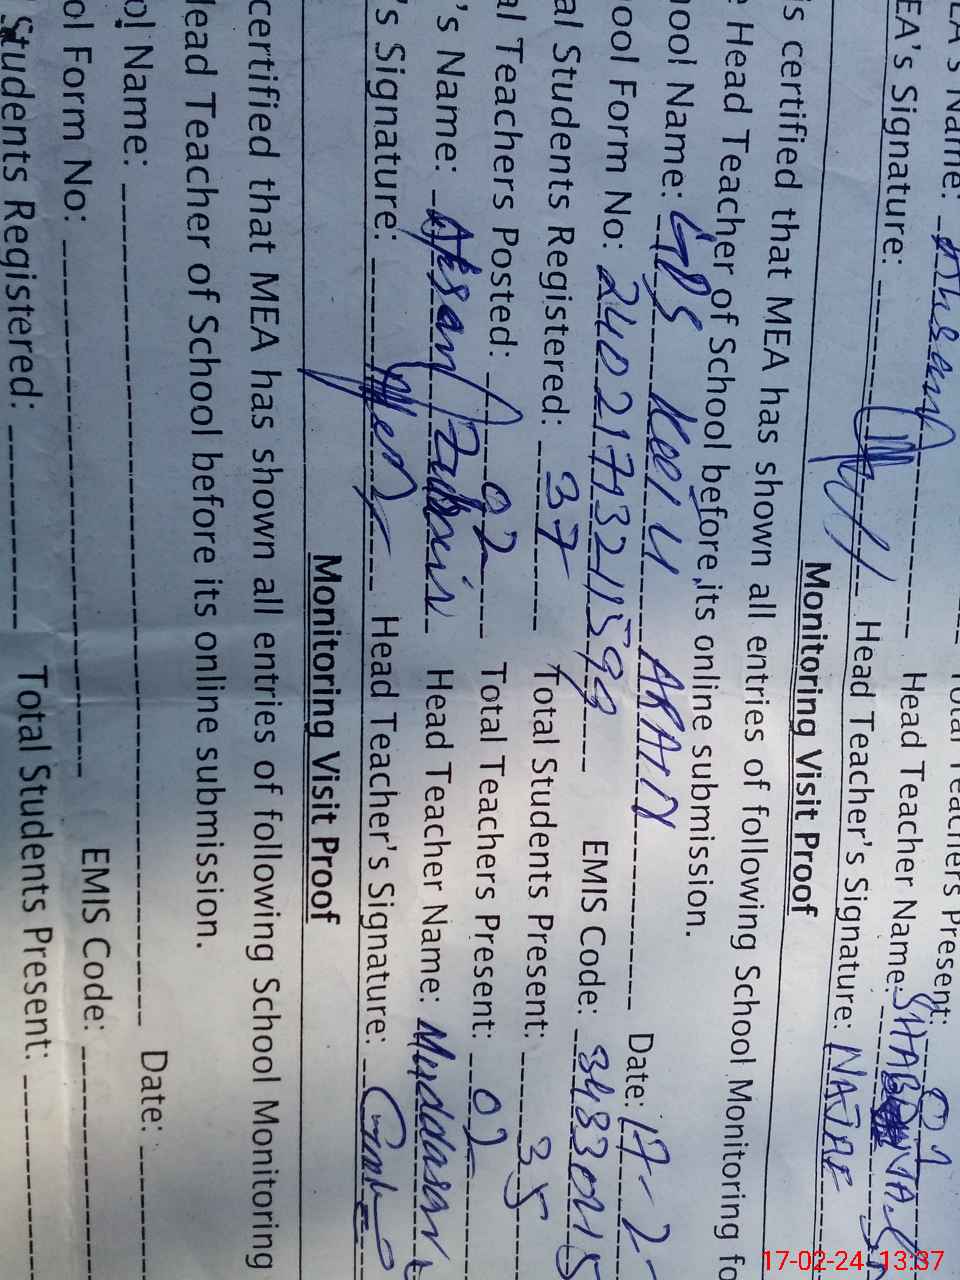 EA's Name: Ahsan Total Teachers Present: 01
EA's Signature: Head Teacher Name: SHAB
Head Teacher's Signature: NAJAF
Monitoring Visit Proof
is certified that MEA has shown all entries of following School Monitoring fo
e Head Teacher of School before its online submission.
hool Name: GPS Keelu ARAIN Date: 17-2-
ool Form No: 2402173211599 EMIS Code: 34330115
al Students Registered: 37 Total Students Present: 35
al Teachers Posted: 02 Total Teachers Present: 02
's Name: Ahsan Zubair Head Teacher Name: Muddasar
's Signature: Head Teacher's Signature:
Monitoring Visit Proof
certified that MEA has shown all entries of following School Monitoring
lead Teacher of School before its online submission.
ol Name: Date:
ol Form No: EMIS Code:
Students Registered: Total Students Present:
17-02-24 13:37